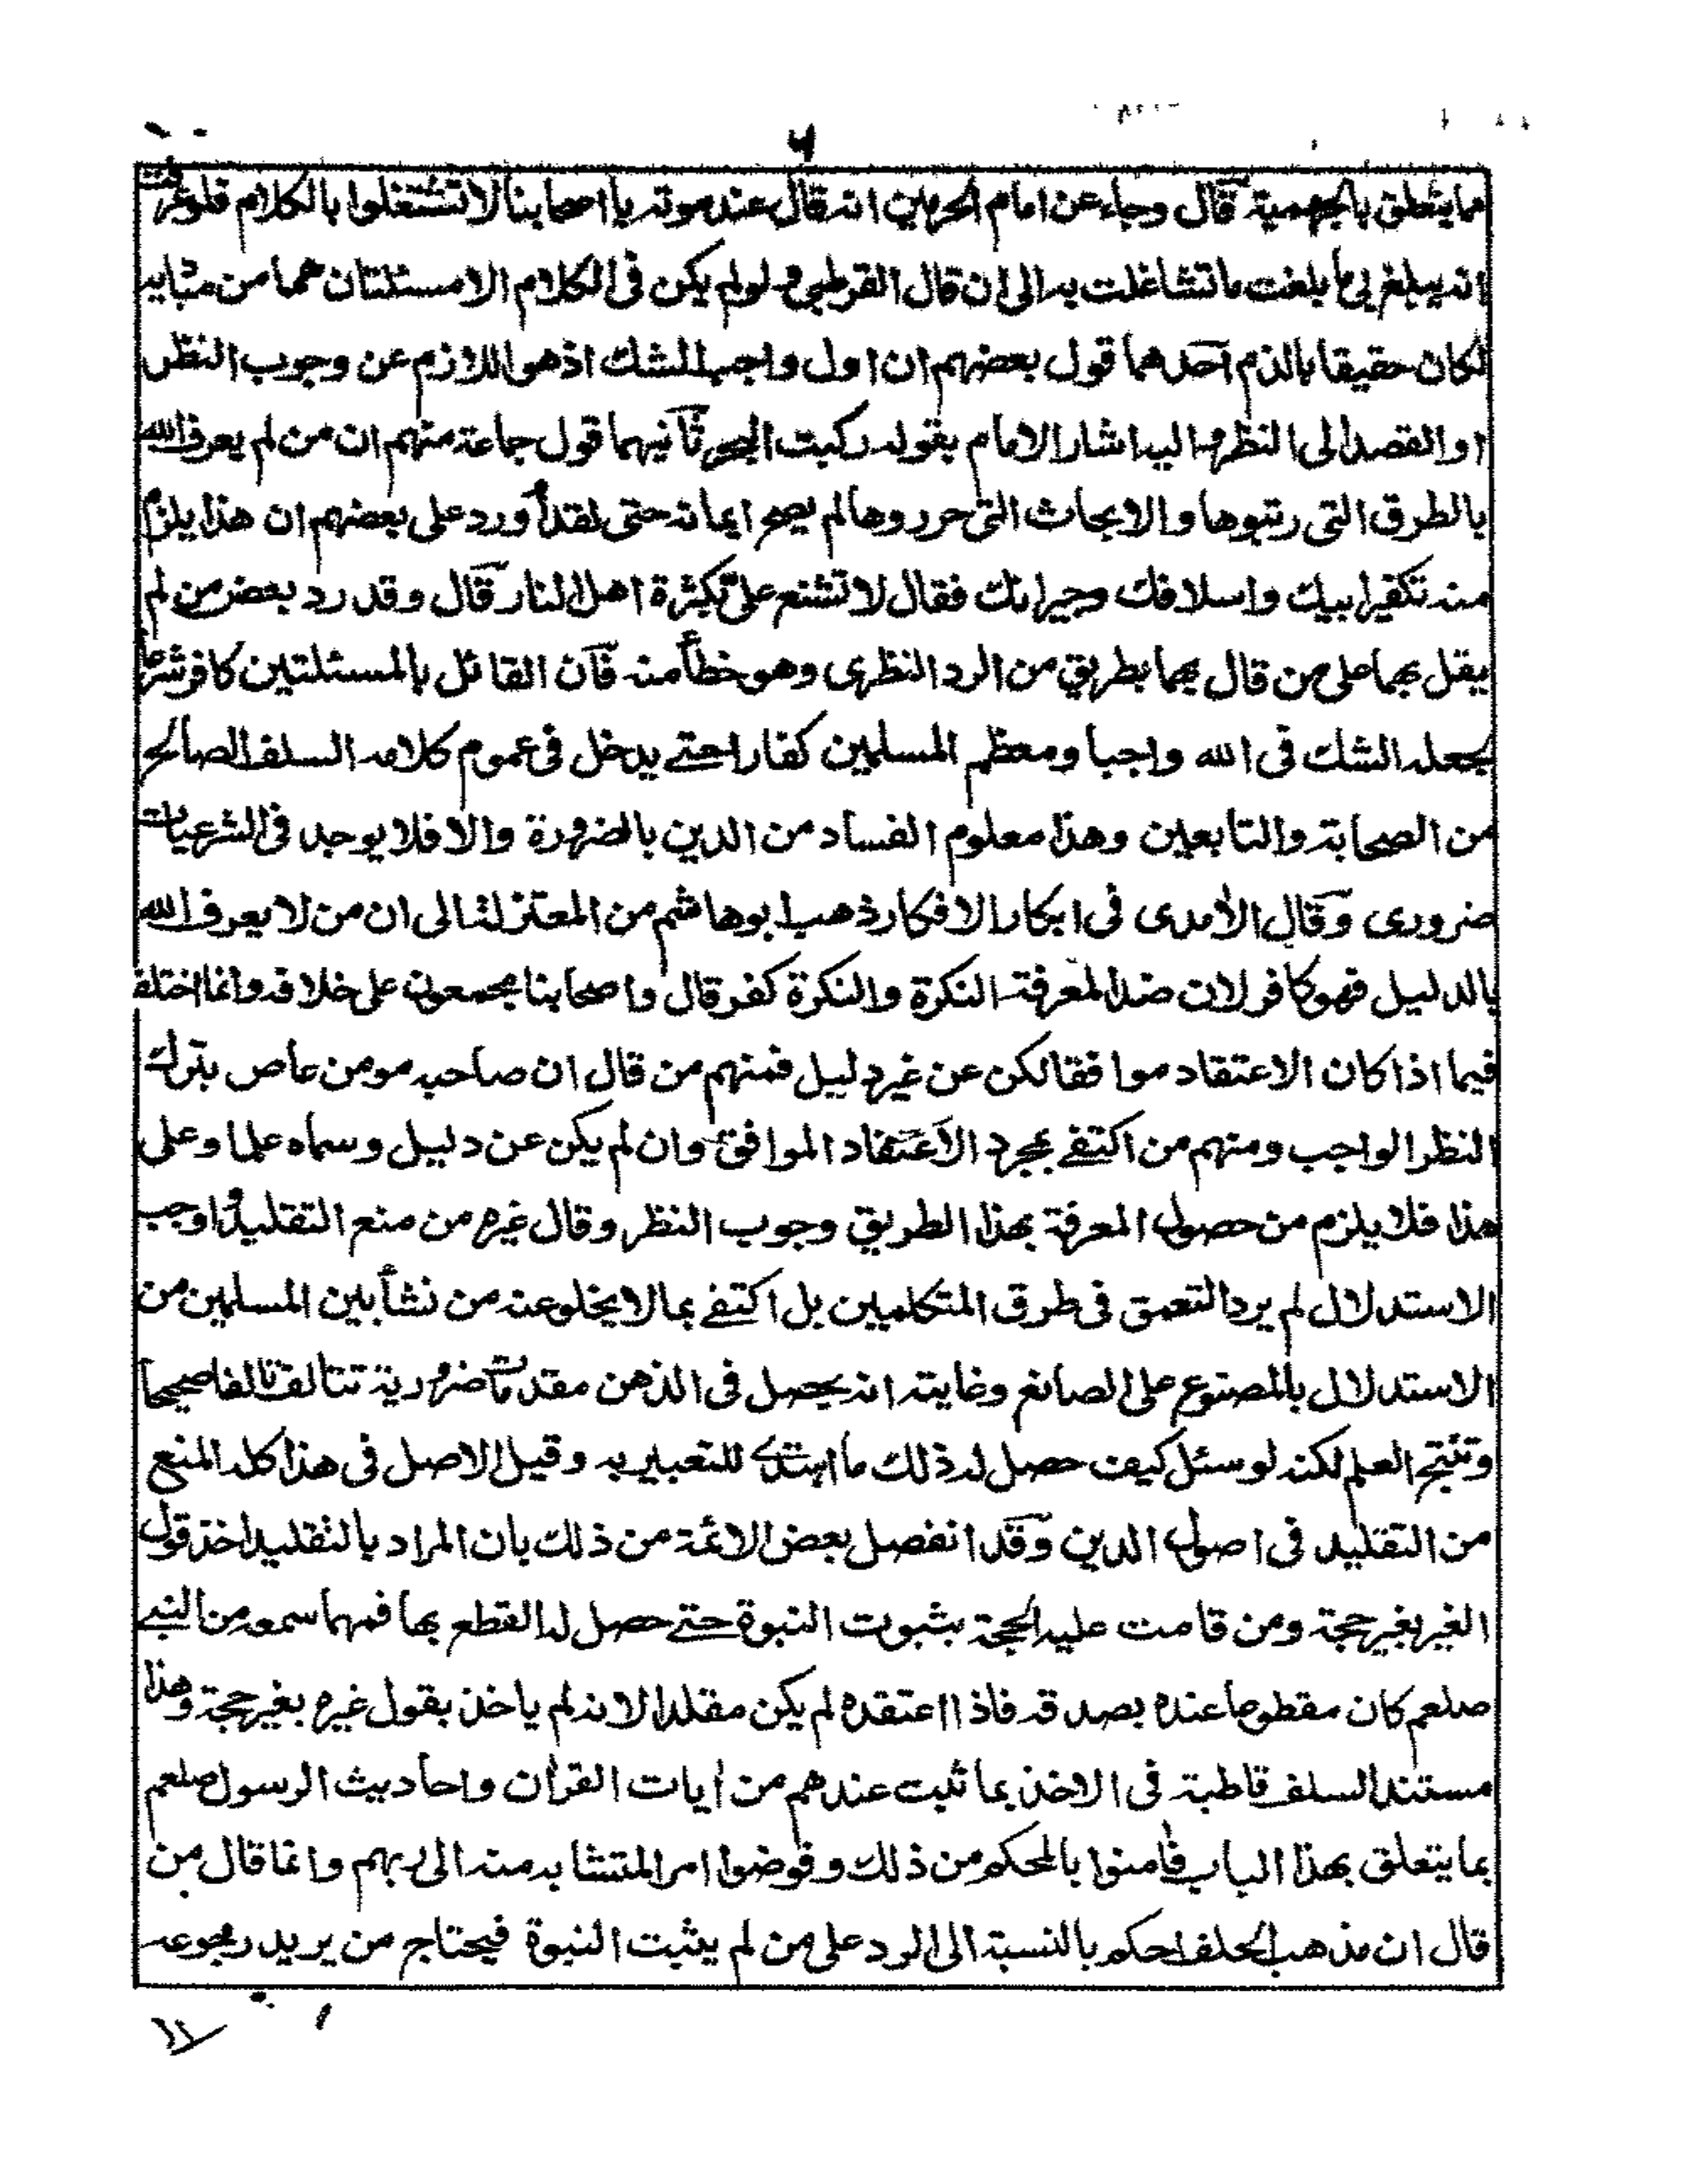 ٦
مما يتعلق بالجهمية قال وجاء عن امام الحرمين انه قال عند موته يا اصحابنا لا تشتغلوا بالكلام فلو عرفت
انه يبلغ بى ما بلغت ما تشاغلت به الى ان قال القرطبى ولو لم يكن فى الكلام الا مسئلتان هما من مباديه
لكان حقيقا بالذم احدهما قول بعضهم ان اول واجب الشك اذ هو اللازم عن وجوب النظر
او القصد الى النظر واليه اشار الامام بقوله ركبت البحر ثانيهما قول جماعة منهم ان من لم يعرف الله
بالطرق التى رتبوها والابحاث التى حرروها لم يصح ايمانه حتى لقد أورد على بعضهم ان هذا يلزم
منه تكفير ابيك واسلافك وجيرانك فقال لا تشنع على بكثرة اهل النار قال وقد رد بعض من لم
يقل بهما على من قال بهما بطريق من الرد النظرى وهو خطأ منه فان القائل بالمسئلتين كافر شرعا
لجعله الشك فى الله واجبا ومعظم المسلمين كفارا حتے يدخل فى عموم كلامه السلف الصالح
من الصحابة والتابعين وهذا معلوم الفساد من الدين بالضرورة والا فلا يوجد فى الشرعيات
ضرورى وقال الآمدى فى ابكار الافكار ذهب ابو هاشم من المعتزلة الى ان من لا يعرف الله
بالدليل فهو كافر لان ضد المعرفة النكرة والنكرة كفر قال واصحابنا مجمعون على خلافه وانما اختلف
فيما اذا كان الاعتقاد موافقا لكن عن غير دليل فمنهم من قال ان صاحبه مومن عاص بترك
النظر الواجب ومنهم من اكتفے بمجرد الاعتقاد الموافق وان لم يكن عن دليل وسماه علما وعلى
هذا فلا يلزم من حصول المعرفة بهذا الطريق وجوب النظر وقال غيره من منع التقليد واوجب
الاستدلال لم يرد التعمق فى طرق المتكلمين بل اكتفے بما لا يخلو عنه من نشأ بين المسلمين من
الاستدلال بالمصنوع على الصانع وغايته انه يحصل فى الذهن مقدمات ضرورية تتالف تالفا صحيحا
وتنتج العلم لكنه لو سئل كيف حصل له ذلك ما اهتدى للتعبير به وقيل الاصل فى هذا كله المنع
من التقليد فى اصول الدين وقد انفصل بعض الائمة من ذلك بان المراد بالتقليد اخذ قول
الغير بغير حجة ومن قامت عليه الحجة بثبوت النبوة حتے حصل له القطع بها فمهما سمعه من النبے
صلعم كان مقطوعا عنده بصدقه فاذا اعتقده لم يكن مقلدا لانه لم ياخذ بقول غيره بغير حجة وهذا
مستند السلف قاطبة فى الاخذ بما ثبت عندهم من ايات القران واحاديث الرسول صلعم
بما يتعلق بهذا الباب فامنوا بالمحكم من ذلك وفوضوا امر المتشابه منه الى ربهم وانما قال من
قال ان مذهب الخلف احكم بالنسبة الى الرد على من لم يثبت النبوة فيحتاج من يريد رجوعه